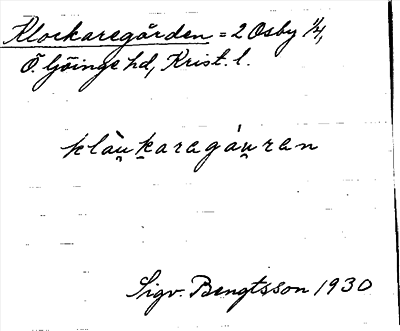 Klockaregården = 2 Osby 1/4,
Ö. Göinge hd, Krist. l.
klàu̯karegáu̯ran
Sigv. Bengtsson 1930